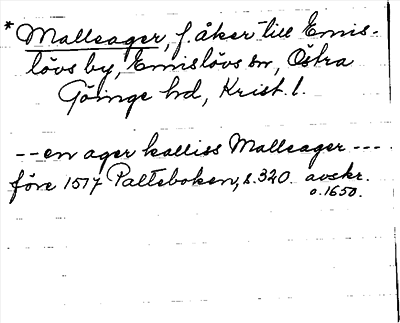 * Malleager, f. åker till Emis-
lövs by, Emislövs sn, Östra
Göinge hd, Krist. l.
-- en ager kalliss Malleager ---
före 1517 Palteboken, s. 320. avskr.
o. 1650.